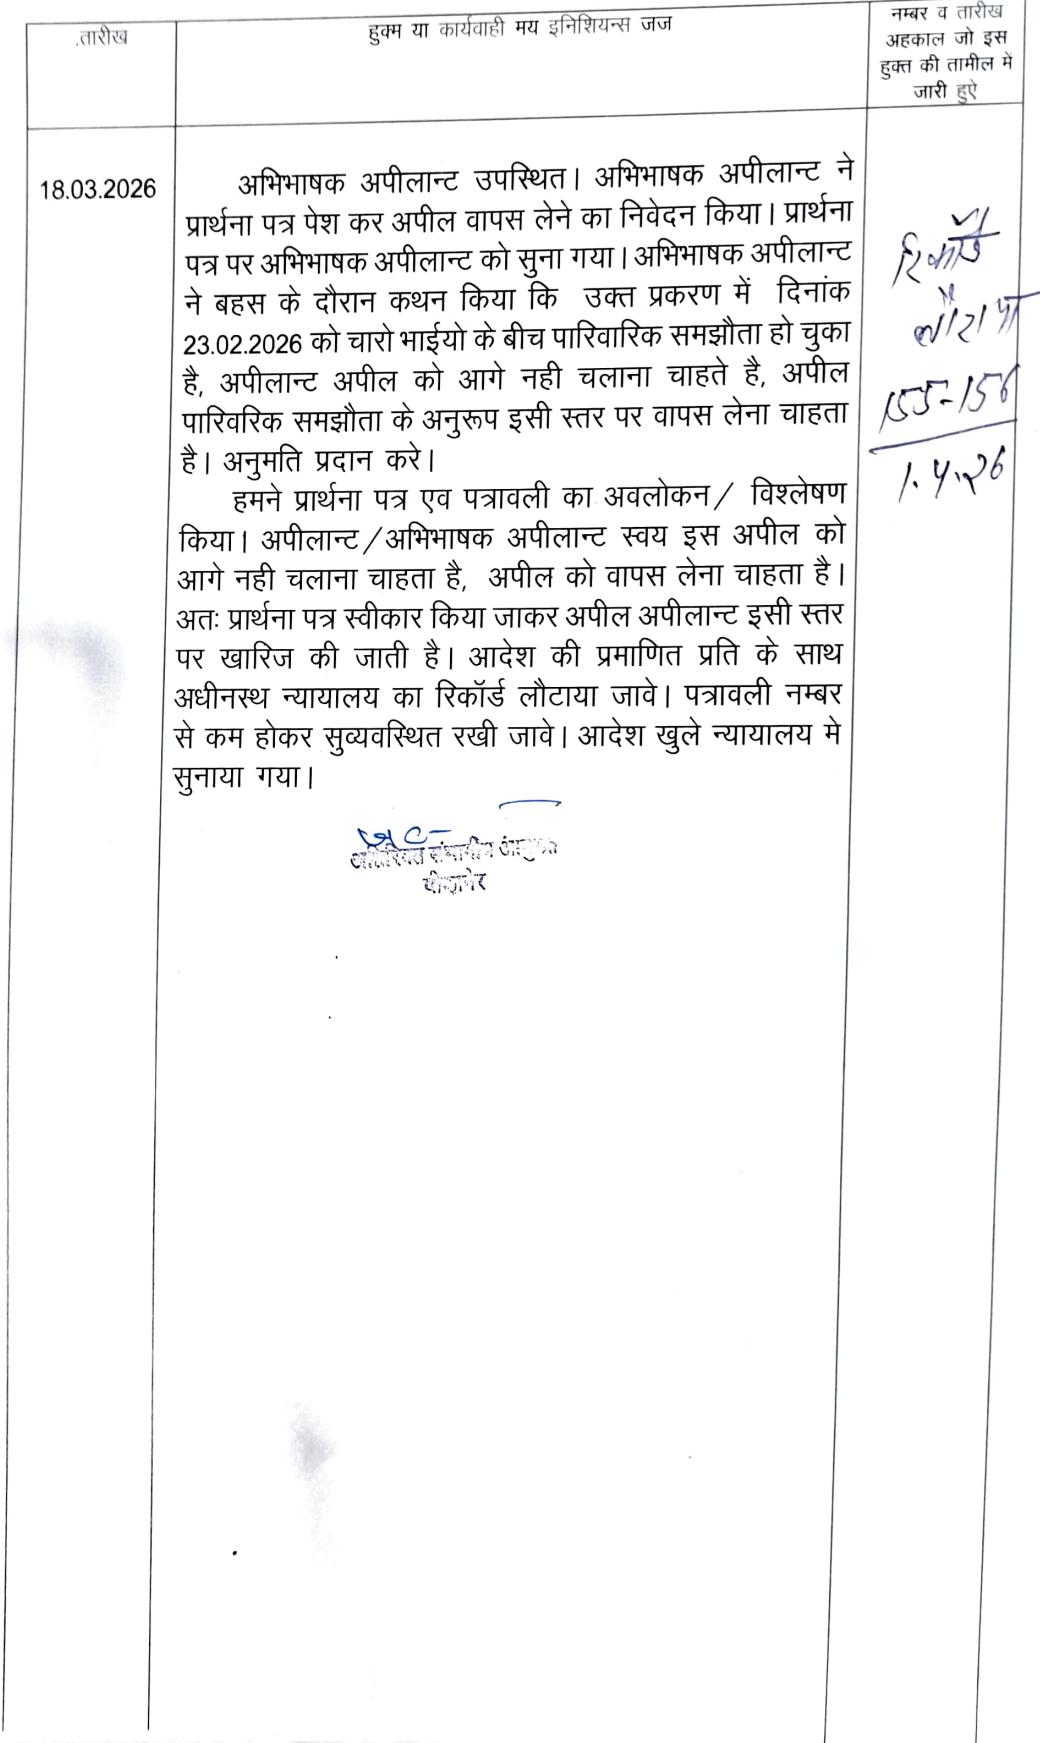 .तारीख
हुक्म या कार्यवाही मय इनिशियन्स जज
नम्बर व तारीख
अहकाल जो इस
हुक्त की तामील में
जारी हुऐ
18.03.2026
अभिभाषक अपीलान्ट उपस्थित। अभिभाषक अपीलान्ट ने
प्रार्थना पत्र पेश कर अपील वापस लेने का निवेदन किया। प्रार्थना
पत्र पर अभिभाषक अपीलान्ट को सुना गया। अभिभाषक अपीलान्ट
ने बहस के दौरान कथन किया कि उक्त प्रकरण में दिनांक
23.02.2026 को चारो भाईयो के बीच पारिवारिक समझौता हो चुका
है, अपीलान्ट अपील को आगे नही चलाना चाहते है, अपील
पारिवरिक समझौता के अनुरूप इसी स्तर पर वापस लेना चाहता
है। अनुमति प्रदान करे।
हमने प्रार्थना पत्र एव पत्रावली का अवलोकन/ विश्लेषण
किया। अपीलान्ट/अभिभाषक अपीलान्ट स्वय इस अपील को
आगे नही चलाना चाहता है, अपील को वापस लेना चाहता है।
अतः प्रार्थना पत्र स्वीकार किया जाकर अपील अपीलान्ट इसी स्तर
पर खारिज की जाती है। आदेश की प्रमाणित प्रति के साथ
अधीनस्थ न्यायालय का रिकॉर्ड लौटाया जावे। पत्रावली नम्बर
से कम होकर सुव्यवस्थित रखी जावे। आदेश खुले न्यायालय मे
सुनाया गया।
अतिरिक्त संभागीय आयुक्त
बीकानेर
रिकॉर्ड
लौटाया
155-156
1.4.26